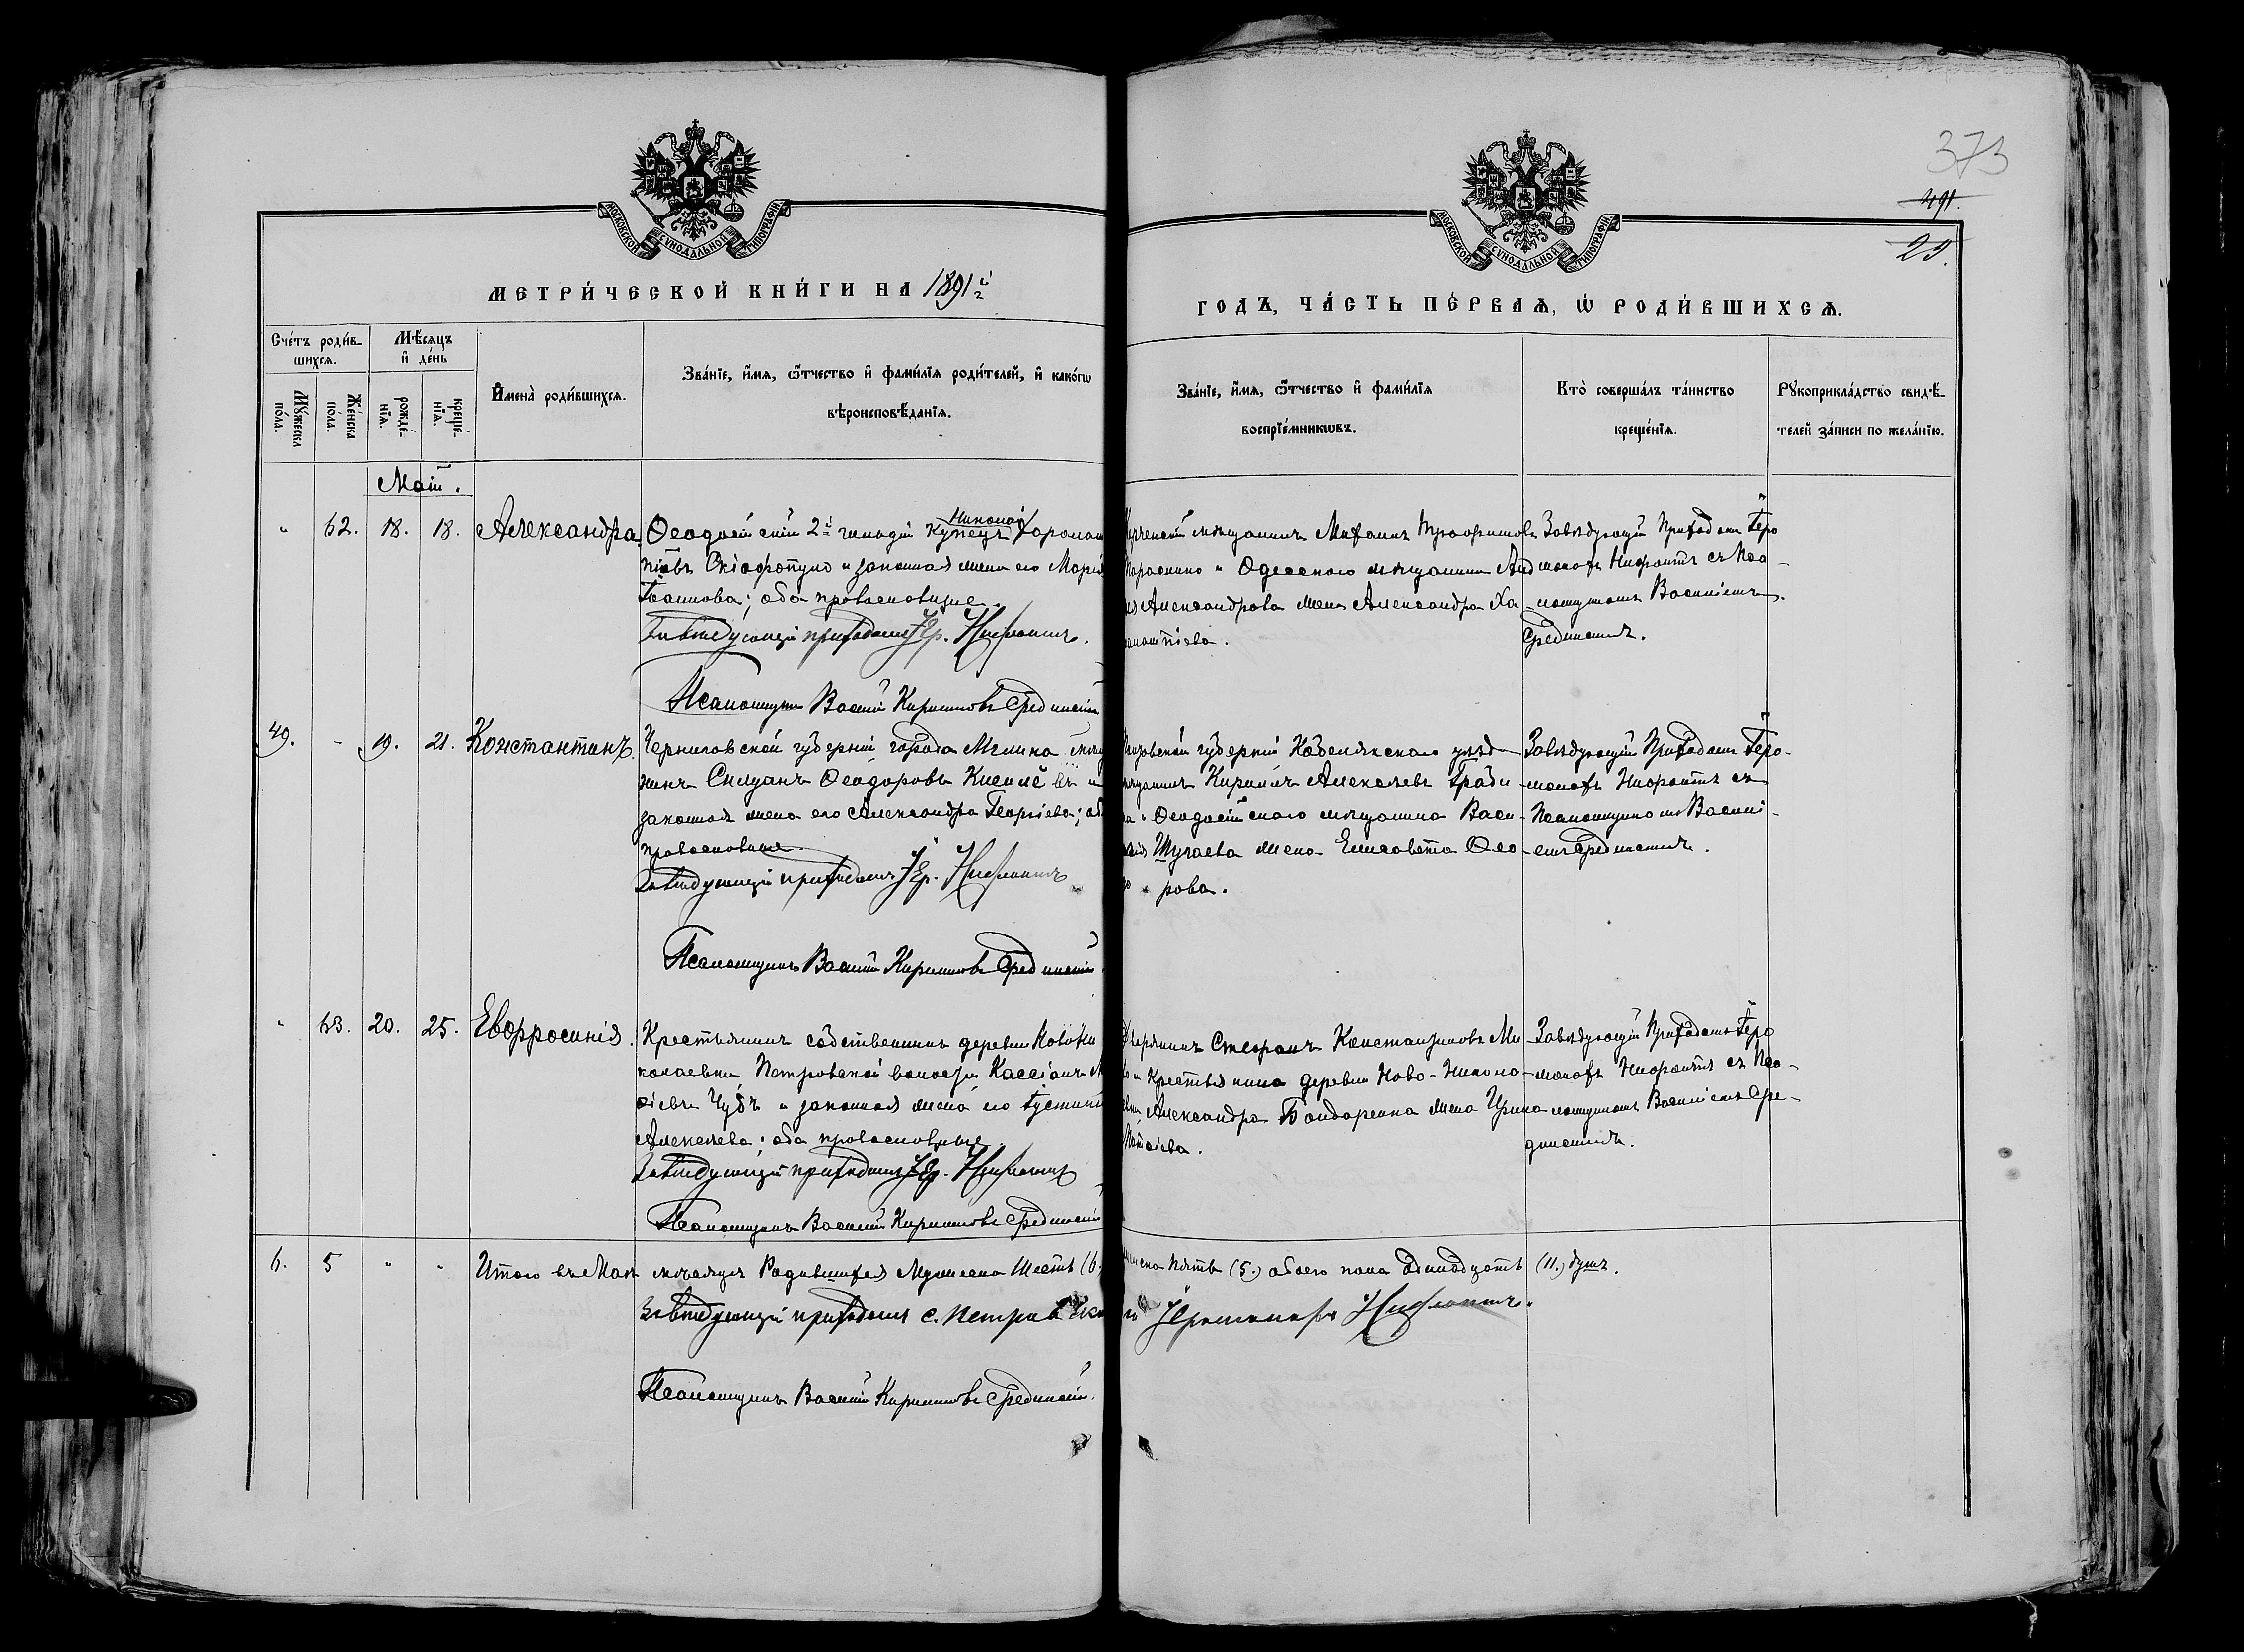 373
491.
29.
МОСКОВСКОЙ СѴНОДАЛЬНОЙ ТИПОГРАФІИ
МОСКОВСКОЙ СѴНОДАЛЬНОЙ ТИПОГРАФІИ
МЕТРИ́ЧЕСКОЙ КНИ́ГИ НА 1891й
ГОДЪ, ЧА́СТЬ ПЕ́РВАѦ, Ѡ РОДИ́ВШИХСѦ.
Сче́тъ роди́в-
шихсѧ.
Мꙋ́жеска по́ла.
Же́нска по́ла.
Мѣ́сѧцъ
и҆ де́нь
рожде́-
нїѧ.
креще́-
нїѧ.
И҆мена̀ роди́вшихсѧ.
Зва́нїе, и҆́мѧ, ѻ҆́тчество и҆ фами́лїѧ роди́телей, и҆ како́гѡ
вѣроисповѣ́данїѧ.
Зва́нїе, и҆́мѧ, ѻ҆́тчество и҆ фами́лїѧ
воспрїе́мникѡвъ.
Кто̀ соверша́лъ та́инство
креще́нїѧ.
Рꙋкоприкла́дство свидѣ́-
телей за́писи по жела́нїю.
Май.
" 62. 18. 18. Александра.
Ѳеодосійскій 2й гильдіи купецъ Николай Харлам
піевъ Скіафопуло и законная жена его Марія
Іоаннова; оба православные.
Завѣдующій приходомъ Іер. Нифонтъ.
Псаломщикъ Василій Кирилловъ Срединскій
Керченскій мѣщанинъ Михаилъ Трофимовъ
и Одесского мѣщанина
Александрова жена Александра Ха
лампіева.
Завѣдующій Приходомъ Іеро
монахъ Нифонтъ съ Пса-
ломщикомъ Василіемъ
Срединскимъ.
49. - 19. 21. Константинъ.
Черниговской губерніи города Мглина мѣща
нинъ Силуанъ Ѳеодоровъ Киселевъ и
законная жена его Александра Георгіева; оба
православные.
Завѣдующій приходомъ Іер. Нифонтъ
Псаломщикъ Василій Кирилловъ Срединскій
губерніи Кобелякскаго уѣзда
мѣщанинъ Кириллъ Алексѣевъ
и Ѳеодосійскаго мѣщанина Васи-
лія Шугаева жена Елисавета Ѳео-
до " рова.
Завѣдующій Приходомъ Іеро-
монахъ Нифонтъ съ
Псаломщикомъ Василі-
емъ Срединскимъ.
" 63. 20. 25. Евфросинія.
Крестьянинъ собственникъ деревни Ново Ни
колаевки Петровской волости Кассіанъ
ѳіевъ Чубъ и законная жена его Іустина
Алексѣева; оба православные.
Завѣдующій приходомъ Іер. Нифонтъ
Псаломщикъ Василій Кирилловъ Срединскій
Дворянинъ Стефанъ Константиновъ
и Крестьянина деревни Ново-Никола-
евки Александра Бондаренка жена Ирина
Матѳіева.
Завѣдующій Приходомъ Іеро
монахъ Нифонтъ съ Пса-
ломщикомъ Василіемъ Сре-
динскимъ.
6. 5 " " Итого въ Маѣ мѣсяцѣ Родившихся Мужеска Шесть (6) женска Пять (5.) обоего пола Одинадцать (11.) душъ.
Завѣдующій приходомъ с. Петровскій Іеромонахъ Нифонтъ.
Псаломщикъ Василій Кирилловъ Срединскій.